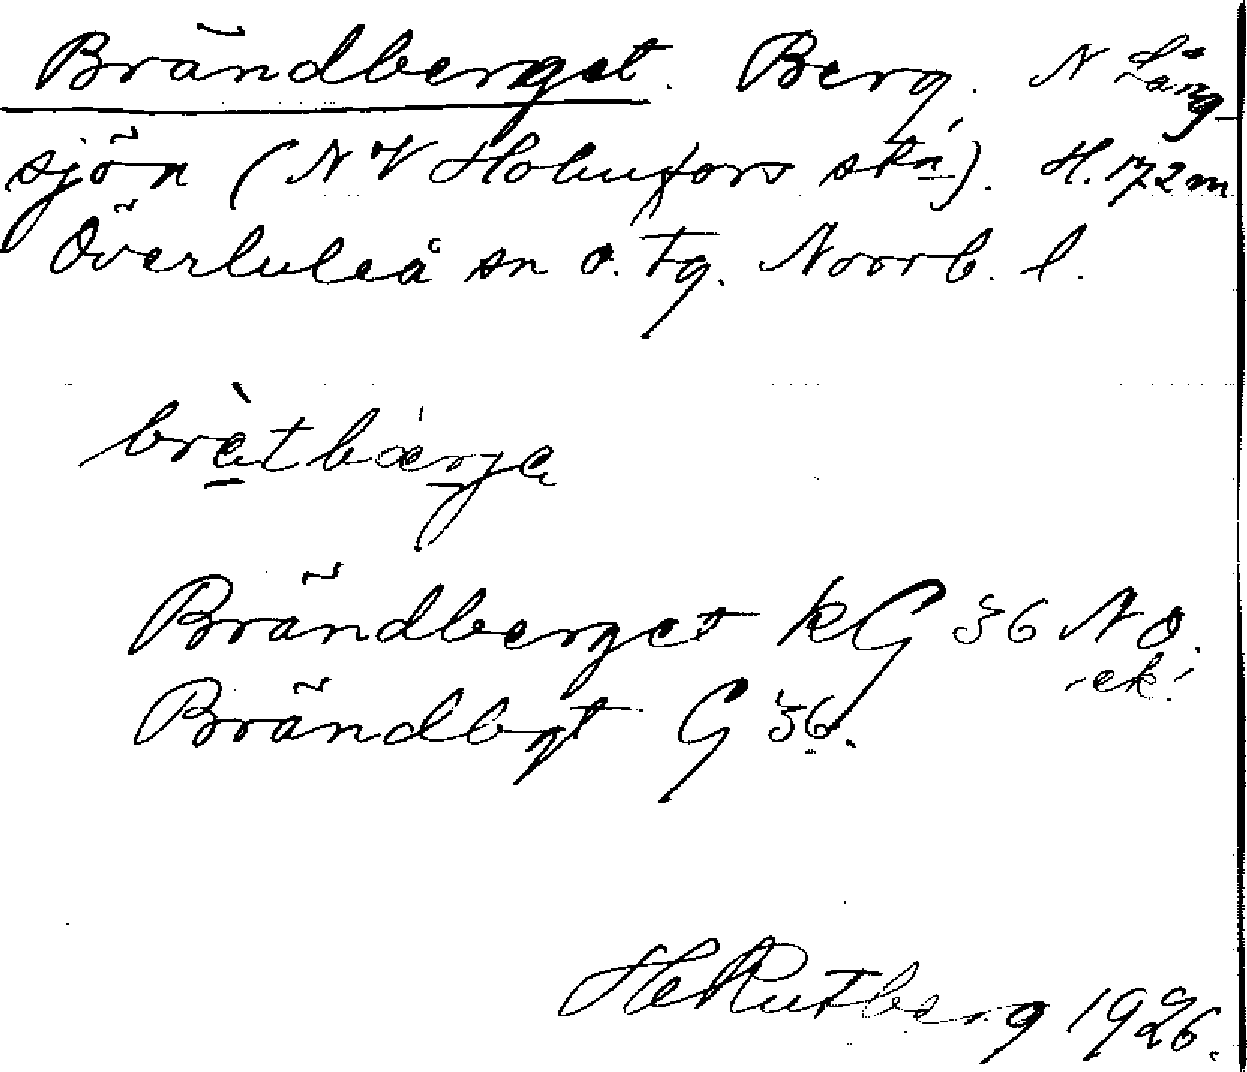 Brändberget. Berg. N Lång-
sjön (NV Holmfors stn). H. 172 m
Överluleå sn o. tg. Norrb. l.
brètbærja
Brändberget kG 36 NO.
ek.
Brändbgt G 36.
H Rutberg 1926.